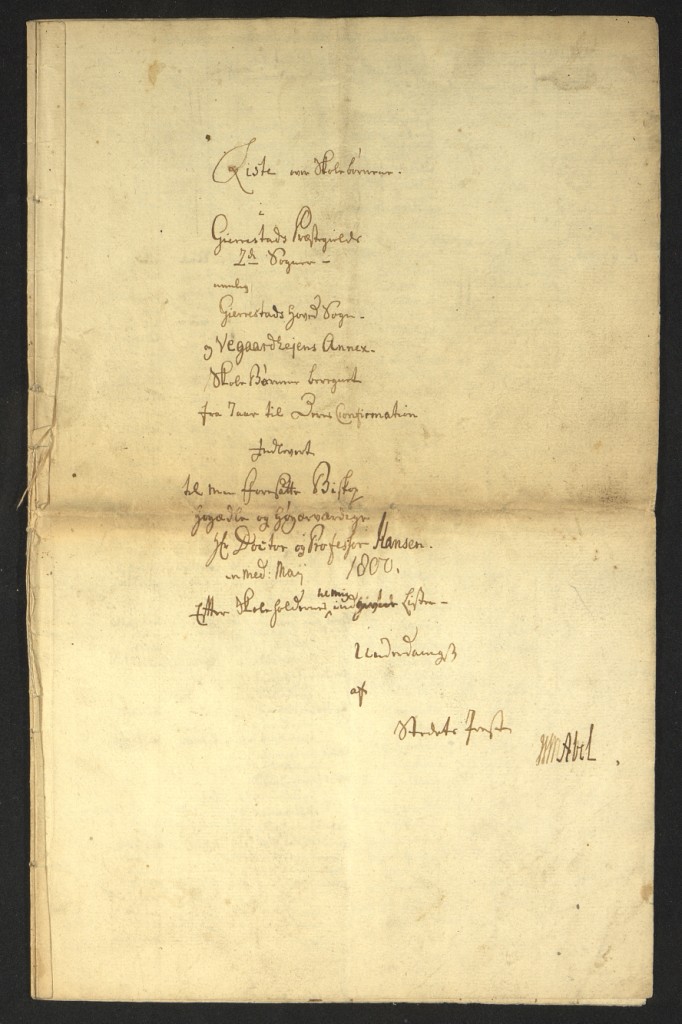 Liste over Skolebørnene.
i
Gierrestads Præstegields
2de Sogner -
nemlig
Gierrestads Hoved Sogn -
og Vegaardheyens Annex -
Skole Børnene beregnet
fra 7 aar til Deres Confirmation
Indlevert
til min foresatte Biskop
Høyædle og Høyærværdige
Hr Doctor og Professor Hansen.
medː Maij 1800.
Efter Skoleholdernes til mig indgivne Lister -
Underdanigst
af
Stedets Præst
Abel